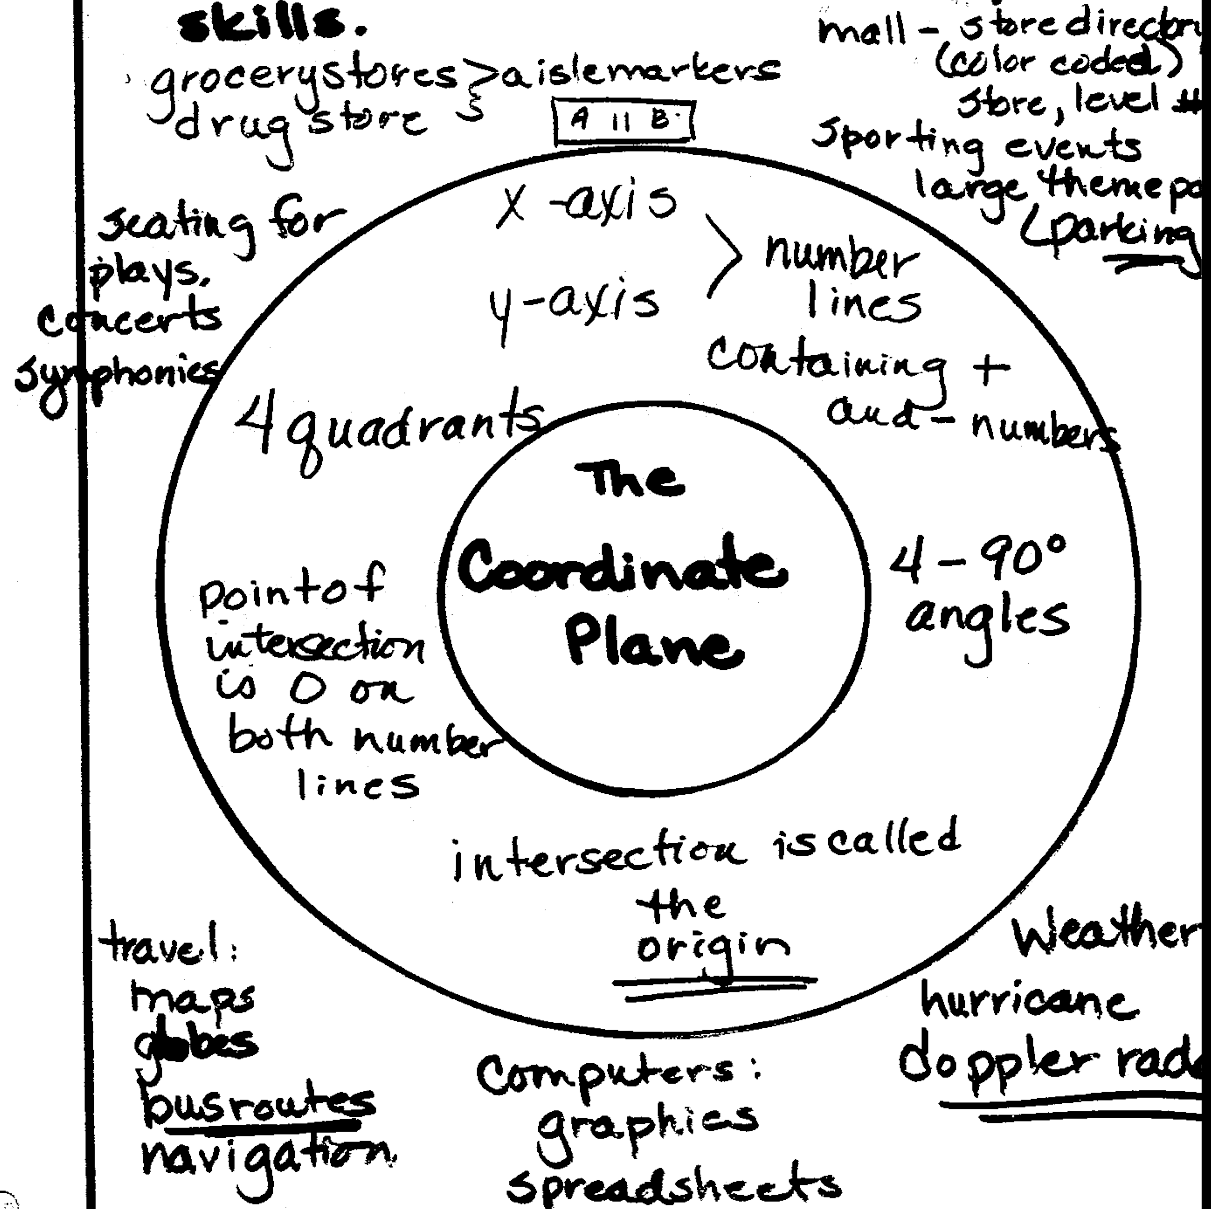 skills.
grocery stores > aisle markers
drug store
A 11 B
mall - store directory
(color coded)
store, level #
sporting events
large theme
(parking
seating for
plays.
concerts
symphonies
x-axis
y-axis
number
lines
containing +
and - numbers
4 quadrants
The
Coordinate
Plane
4 - 90°
angles
point of
intersection
is 0 on
both number
lines
intersection is called
the
origin
travel:
maps
globes
bus routes
navigation
Computers:
graphics
spreadsheets
Weather
hurricane
doppler